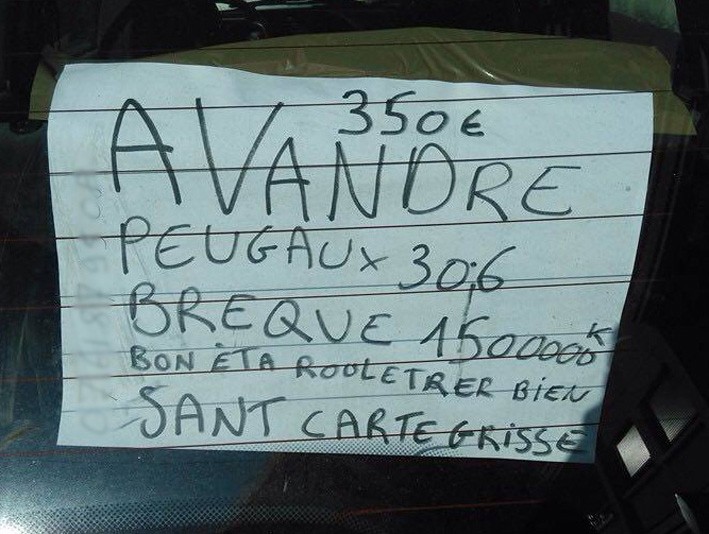 350€
AVANDRE
PEUGAUX 30;6
BREQUE 1500000K
BON ÈTA ROULETRER BIEN
SANT CARTE GRISSE